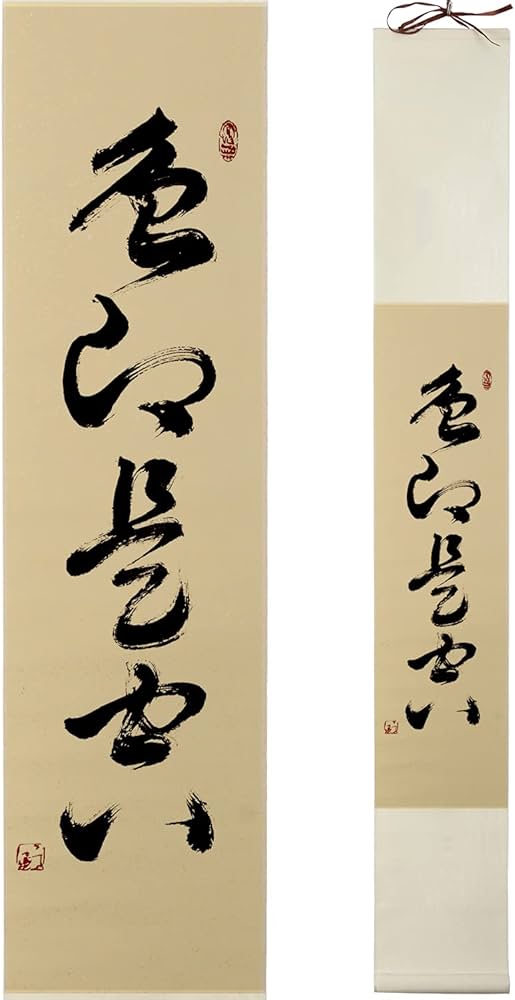 色即是空
色即是空